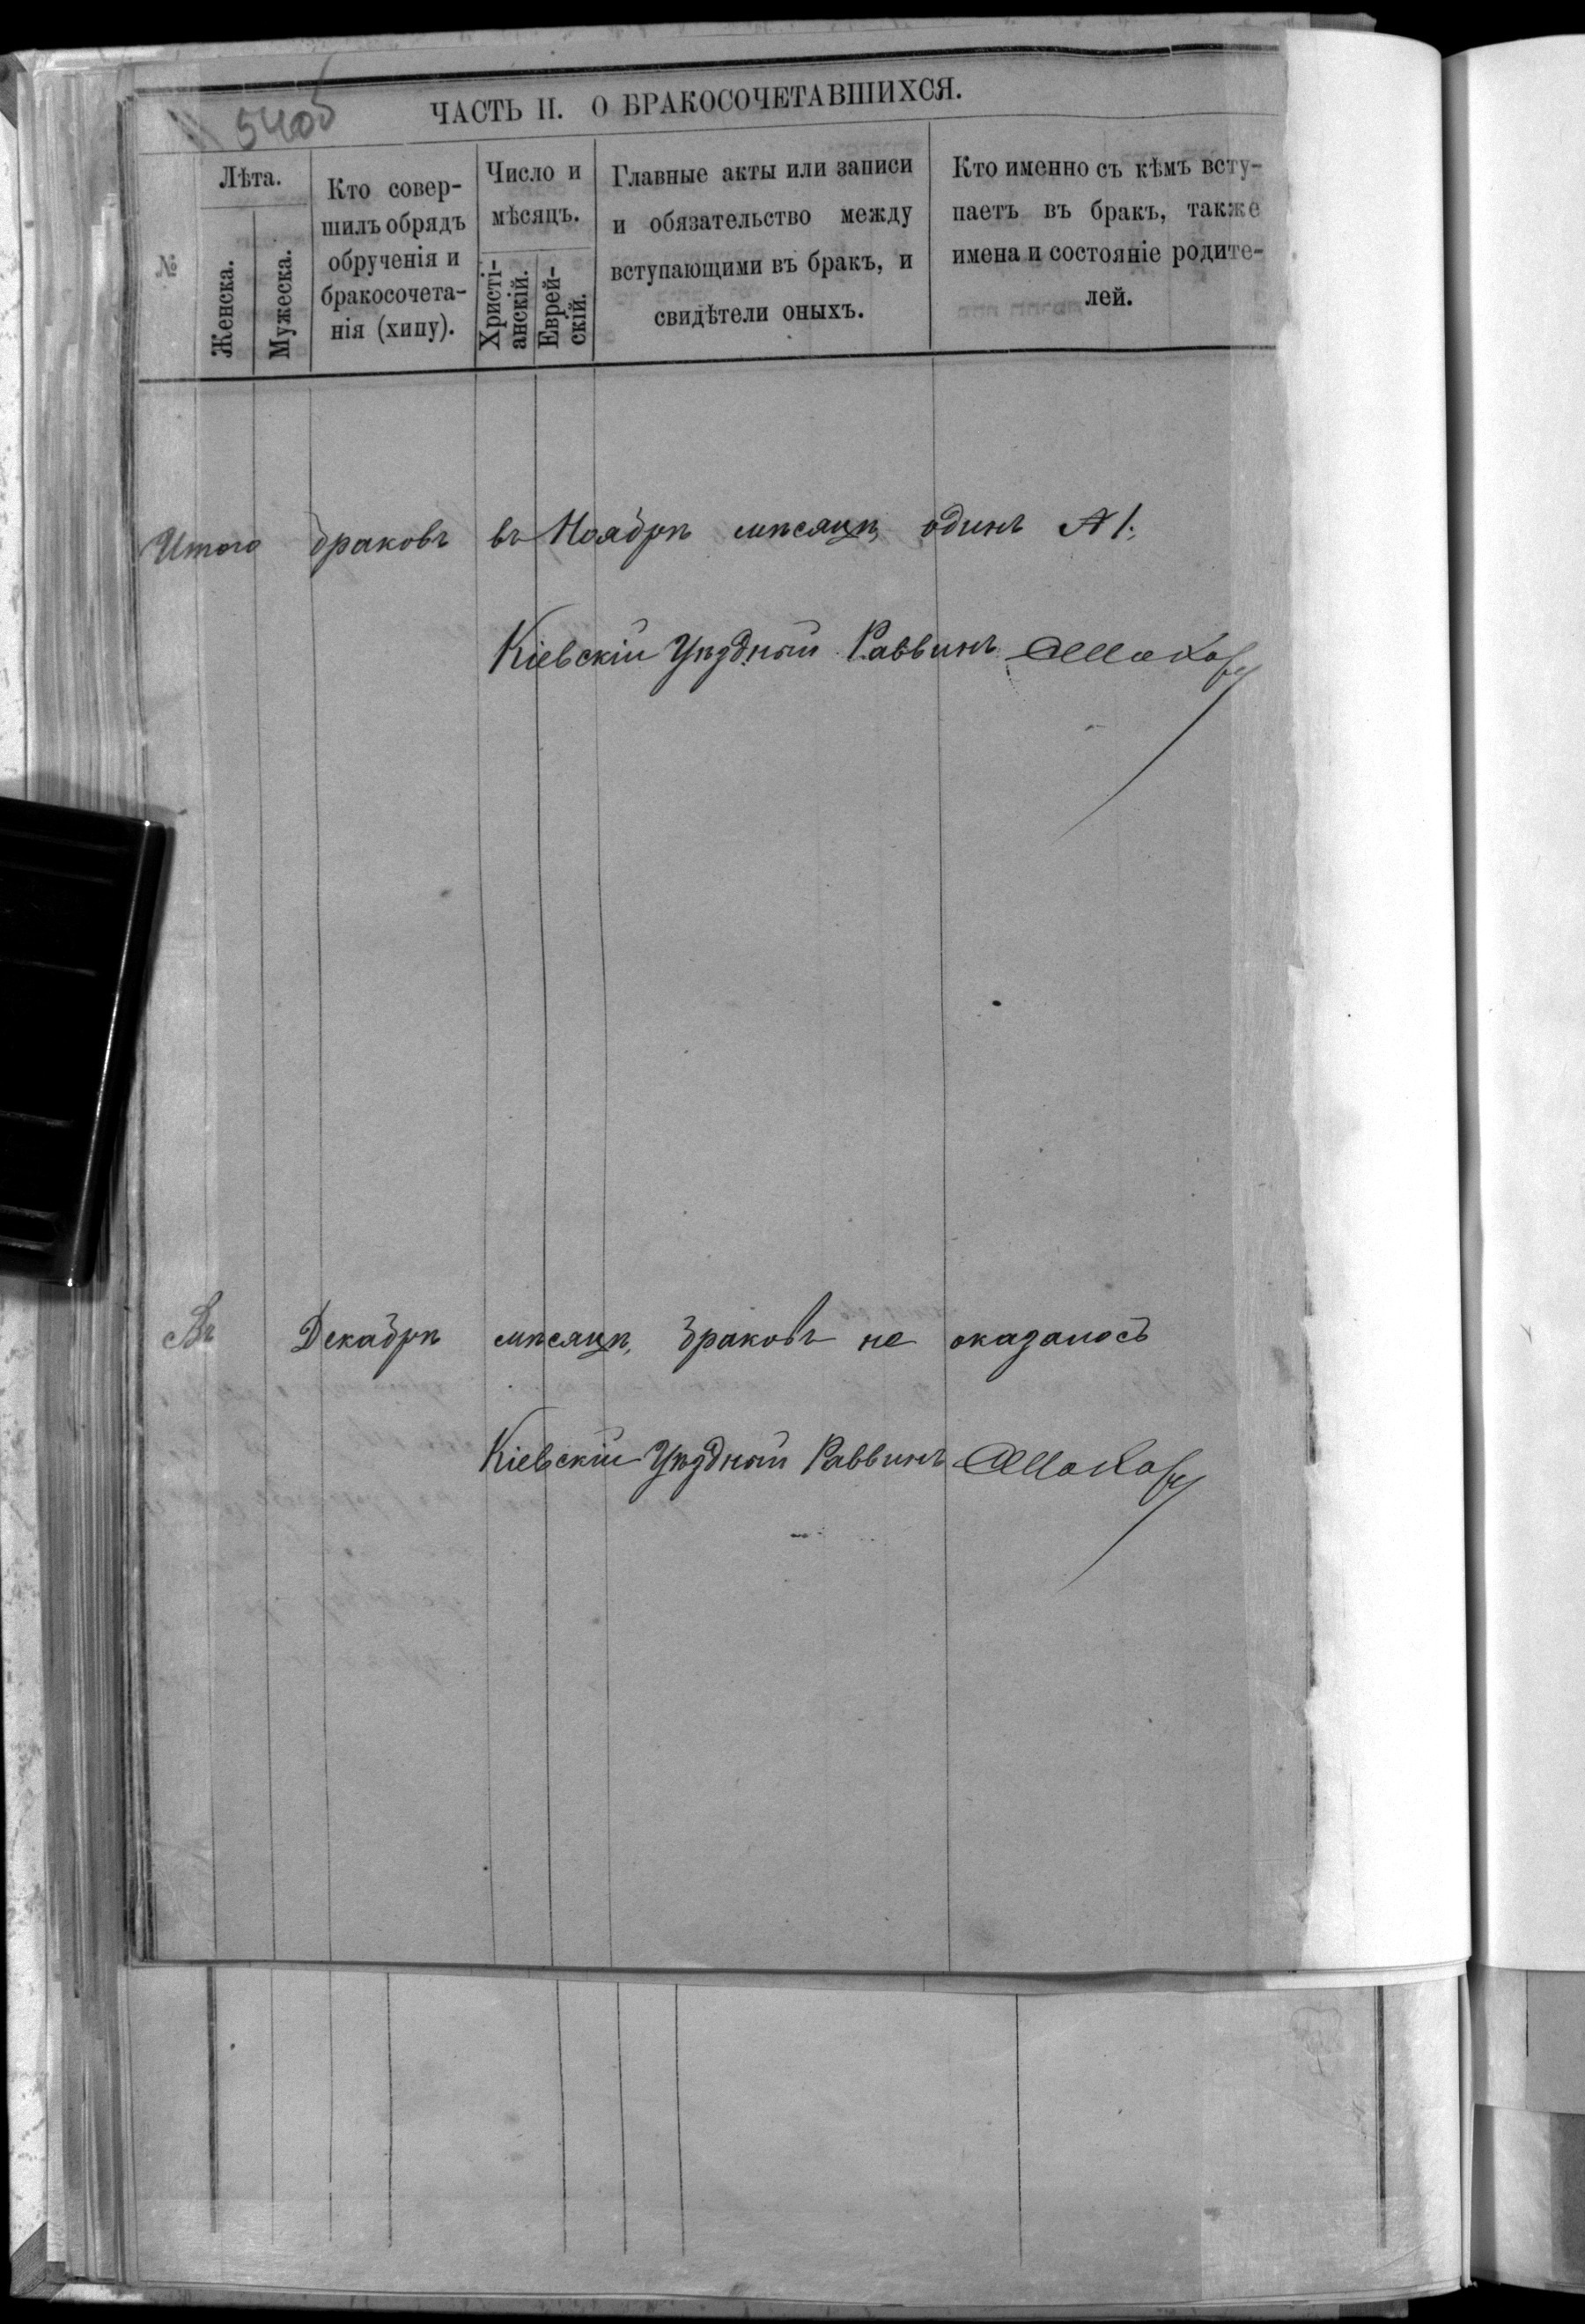 540об
ЧАСТЬ II. О БРАКОСОЧЕТАВШИХСЯ.
№
Лѣта.
Женска.
Мужеска.
Кто совер-
шилъ обрядъ
обрученія и
бракосочета-
нія (хипу).
Число и
мѣсяцъ.
Христі-
анскій.
Еврей-
скій.
Главные акты или записи
и обязательство между
вступающими въ бракъ, и
свидѣтели оныхъ.
Кто именно съ кѣмъ всту-
паетъ въ бракъ, также
имена и состояніе родите-
лей.
Итого браковъ въ Ноябрѣ мѣсяцѣ одинъ № 1.
Кіевскій Уѣздный Раввинъ
Въ Декабрѣ мѣсяцѣ, браковъ не оказалось
Кіевскій Уѣздный Раввинъ